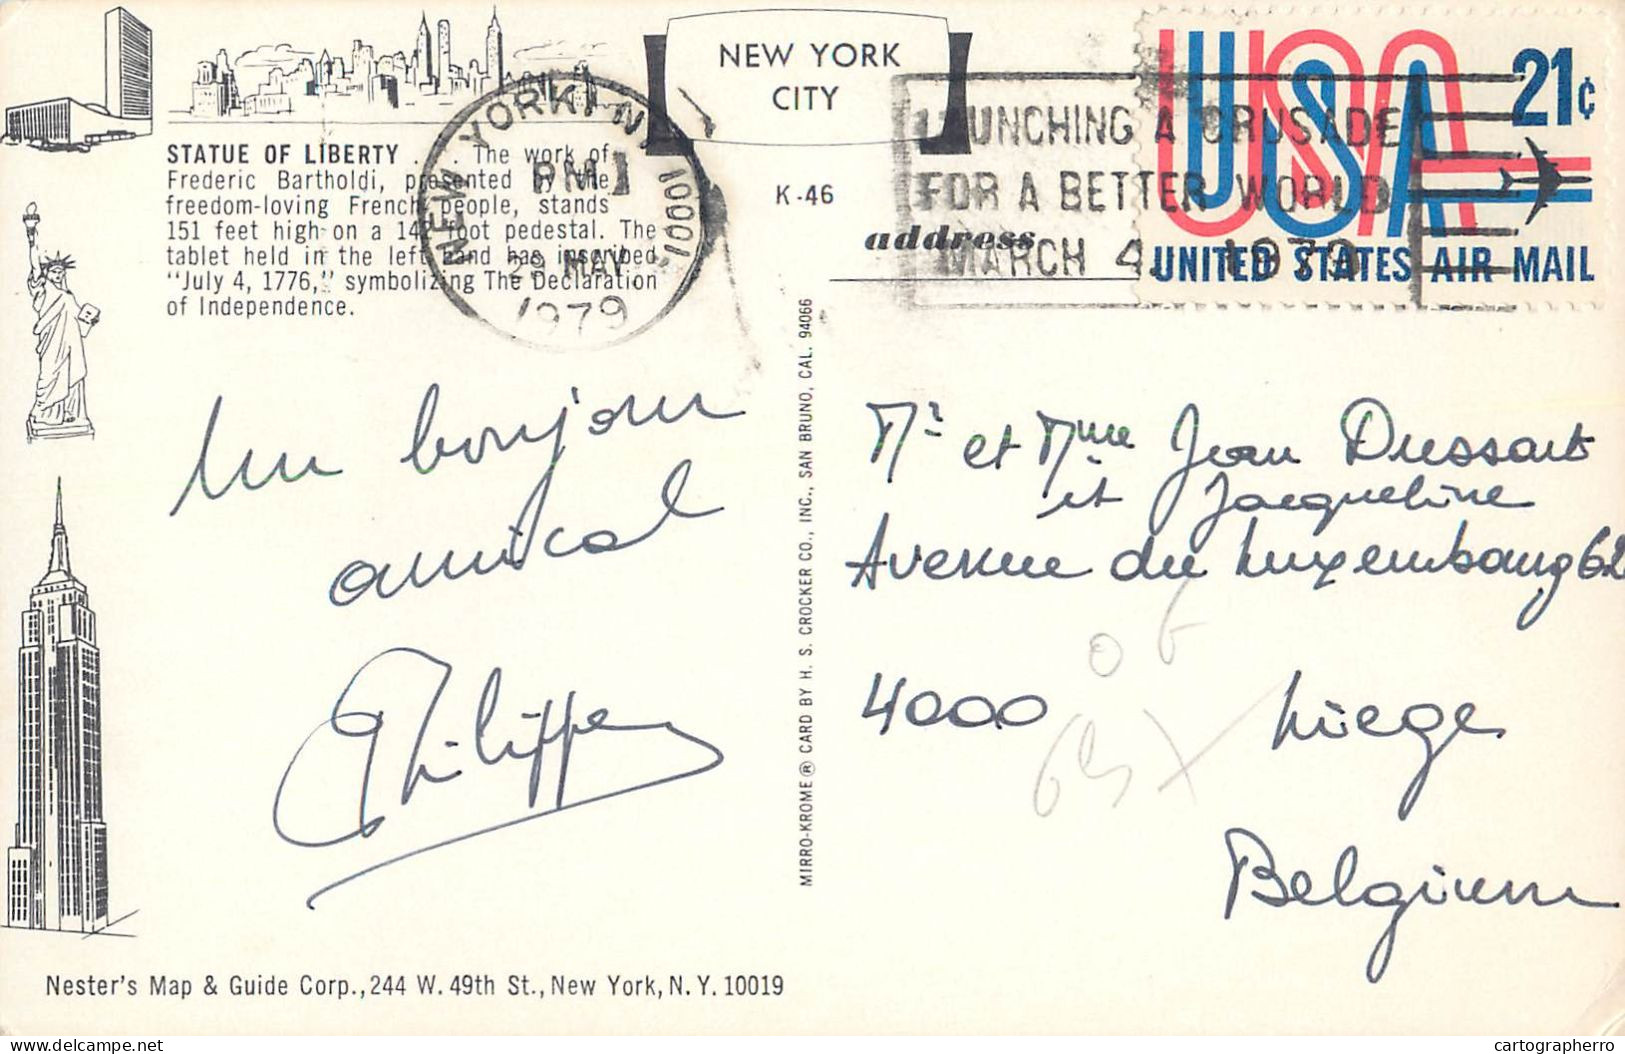 NEW YORK
CITY
K-46
address
STATUE OF LIBERTY . . . The work of
Frederic Bartholdi, presented by the
freedom-loving French people, stands
151 feet high on a 142 foot pedestal. The
tablet held in the left hand has inscribed
"July 4, 1776," symbolizing The Declaration
of Independence.
NEW YORK, NY 10001
PM
29 MAY
1979
LAUNCHING A CRUSADE
FOR A BETTER WORLD
MARCH 4, 1979
USA
21¢
UNITED STATES AIR MAIL
Un bonjour
amical
Philippe
MIRRO-KROME® CARD BY H. S. CROCKER CO., INC., SAN BRUNO, CAL. 94066
Mr et Mme Jean Dussart
et Jacqueline
Avenue du Luxembourg 62
4000 Liège
Belgium
Nester's Map & Guide Corp., 244 W. 49th St., New York, N.Y. 10019
cartographerro